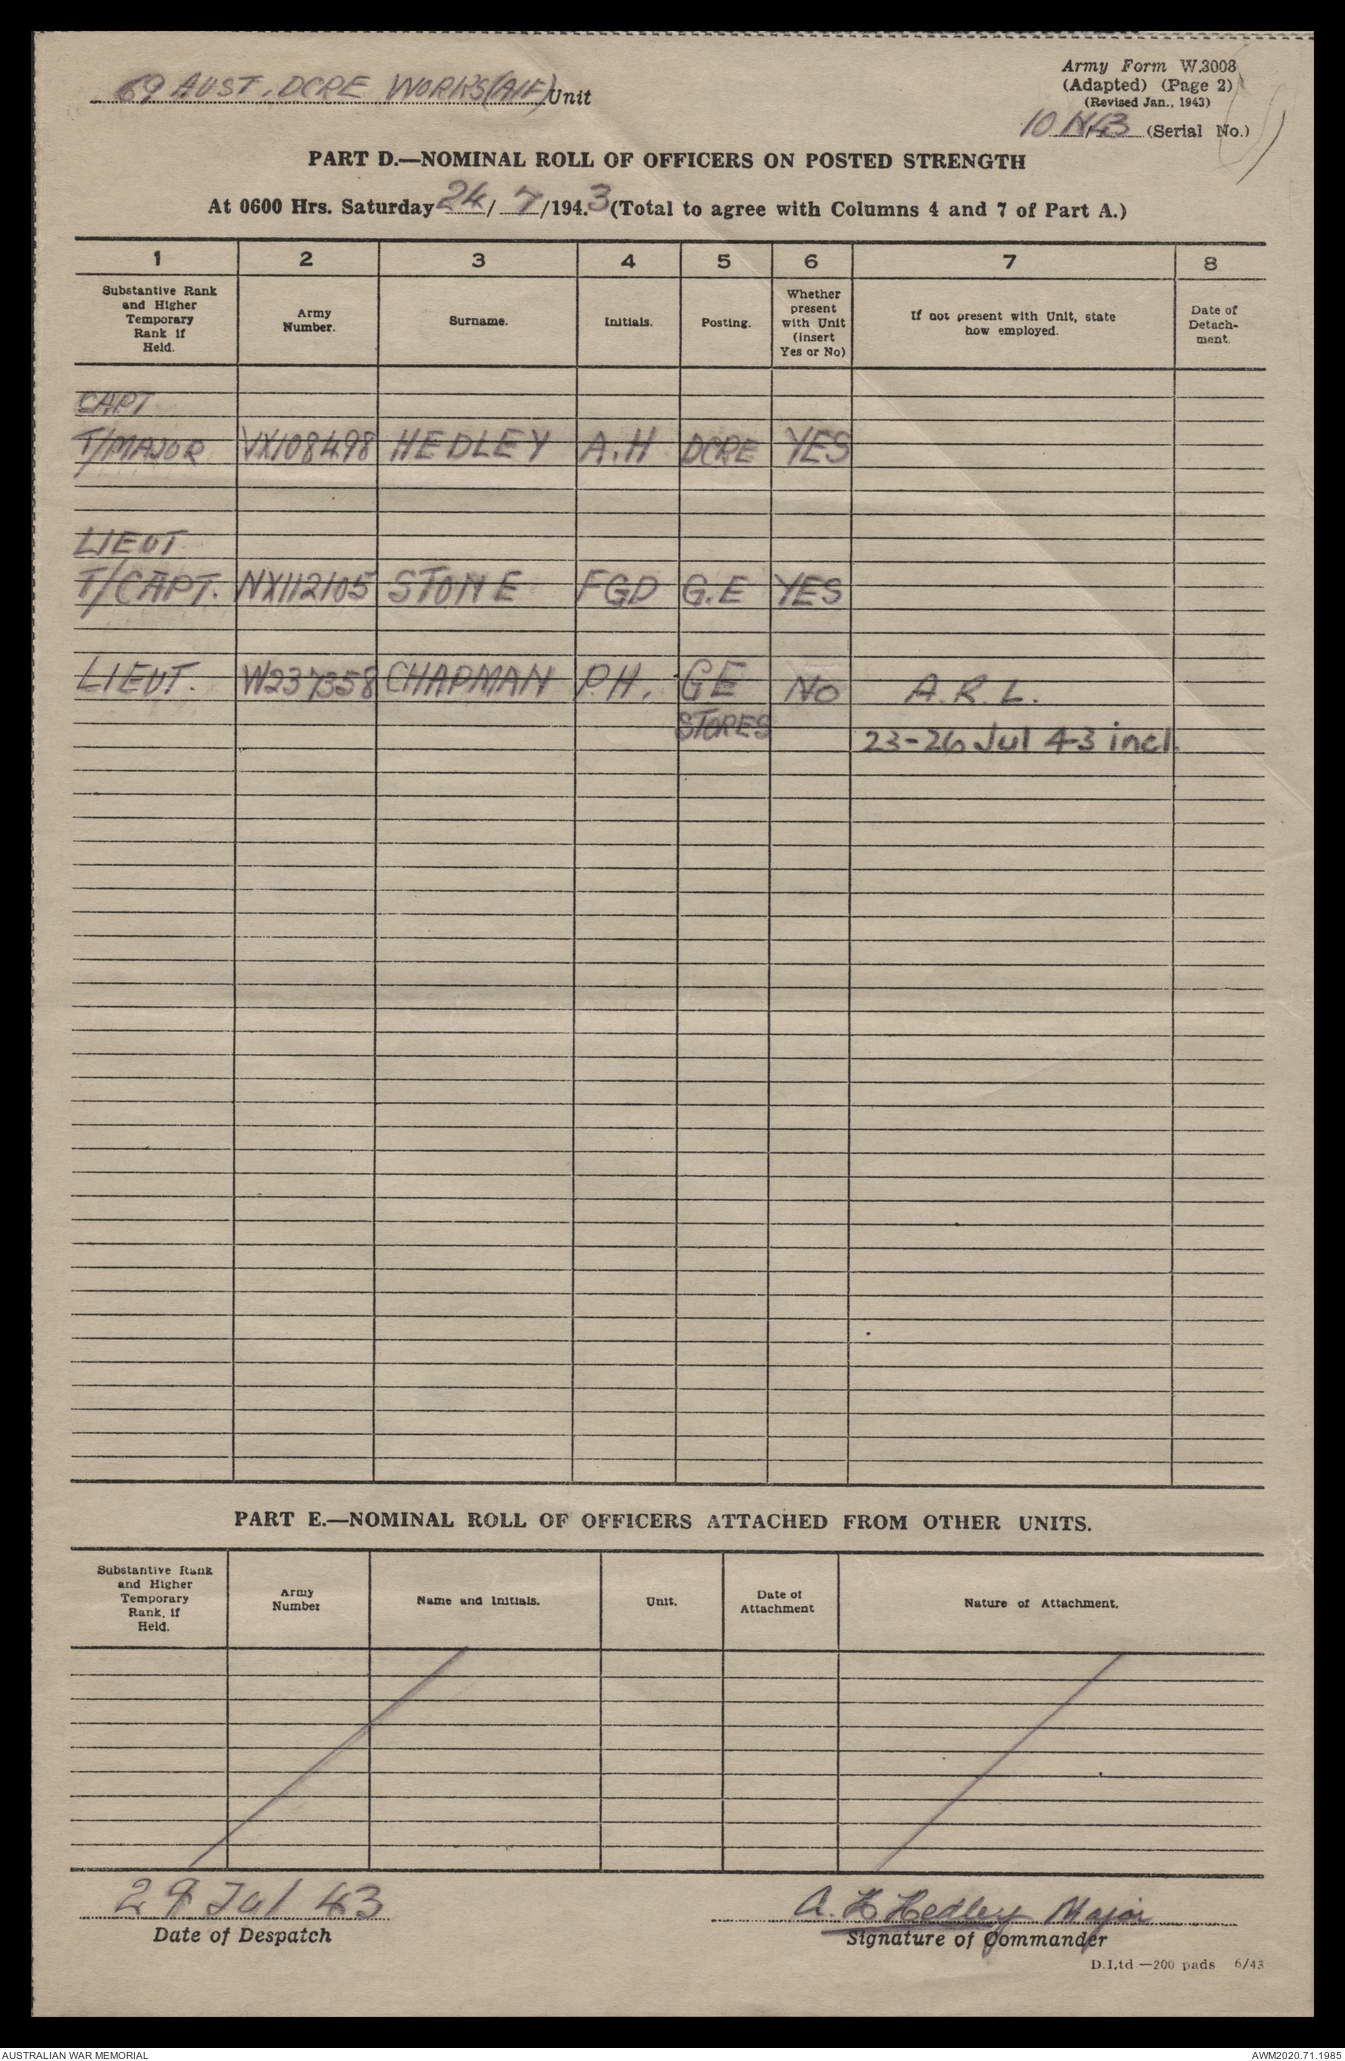 69 AUST. DCRE WORKS(AIF) Unit
Army Form W.3008
(Adapted) (Page 2)
(Revised Jan., 1943)
10 (Serial No.)
PART D.—NOMINAL ROLL OF OFFICERS ON POSTED STRENGTH
At 0600 Hrs. Saturday 24/ 7/194.3 (Total to agree with Columns 4 and 7 of Part A.)
1 2 3 4 5 6 7 8
Substantive Rank and Higher Temporary Rank if Held.
Army Number.
Surname.
Initials.
Posting.
Whether present with Unit (insert Yes or No)
If not present with Unit, state how employed.
Date of Detach-ment.
CAPT
T/MAJOR VX108498 HEDLEY A.H DCRE YES
LIEUT
T/CAPT. NX112105 STONE FGD G.E YES
LIEUT. W237358 CHAPMAN P.H. GE NO A.R.L.
STORES 23-26 Jul 43 incl.
PART E.—NOMINAL ROLL OF OFFICERS ATTACHED FROM OTHER UNITS.
Substantive Rank and Higher Temporary Rank, if Held.
Army Number
Name and Initials.
Unit.
Date of Attachment
Nature of Attachment.
Jul 43
Date of Despatch
A. H Hedley Major
Signature of Commander
D.Ltd —200 pads 6/43
AUSTRALIAN WAR MEMORIAL
AWM2020.71.1985